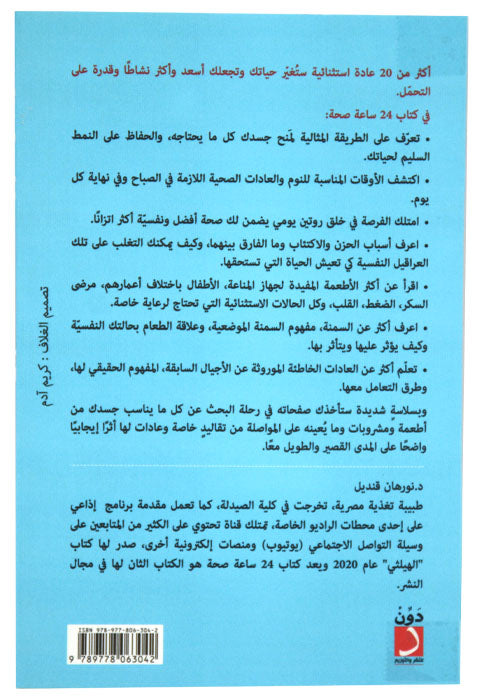 أكثر من 20 عادة استثنائية ستُغيّر حياتك وتجعلك أسعد وأكثر نشاطًا وقدرة على
التحمّل.
في كتاب 24 ساعة صحة:
• تعرّف على الطريقة المثالية لمَنح جسدك كل ما يحتاجه، والحفاظ على النمط
السليم لحياتك.
• اكتشف الأوقات المناسبة للنوم والعادات الصحية اللازمة في الصباح وفي نهاية كل
يوم.
• امتلك الفرصة في خلق روتين يومي يضمن لك صحة أفضل ونفسيّة أكثر اتزانًا.
• اعرف أسباب الحزن والاكتئاب وما الفارق بينهما، وكيف يمكنك التغلب على تلك
العراقيل النفسية كي تعيش الحياة التي تستحقها.
• اقرأ عن أكثر الأطعمة المفيدة لجهاز المناعة، الأطفال باختلاف أعمارهم، مرضى
السكر، الضغط، القلب، وكل الحالات الاستثنائية التي تحتاج لرعاية خاصة.
• اعرف أكثر عن السمنة، مفهوم السمنة الموضعية، وعلاقة الطعام بحالتك النفسيّة
وكيف يؤثر عليها ويتأثر بها.
• تعلّم أكثر عن العادات الخاطئة الموروثة عن الأجيال السابقة، المفهوم الحقيقي لها،
وطرق التعامل معها.
وبسلاسةٍ شديدة ستأخذك صفحاته في رحلة البحث عن كل ما يناسب جسدك من
أطعمة ومشروبات وما يُعينه على المواصلة من تقاليدٍ خاصة وعادات لها أثرًا إيجابيًا
واضحًا على المدى القصير والطويل معًا.
د.نورهان قنديل
طبيبة تغذية مصرية، تخرجت في كلية الصيدلة، كما تعمل مقدمة برنامج إذاعي
على إحدى محطات الراديو الخاصة، تمتلك قناة تحتوي على الكثير من المتابعين على
وسيلة التواصل الاجتماعي (يوتيوب) ومنصات إلكترونية أخرى، صدر لها كتاب
"الهيلثي" عام 2020 ويعد كتاب 24 ساعة صحة هو الكتاب الثان لها في مجال
النشر.
تصميم الغلاف : كريم آدم
دَوِّنْ
للنشر والتوزيع
ISBN 978-977-806-304-2
9 789778 063042